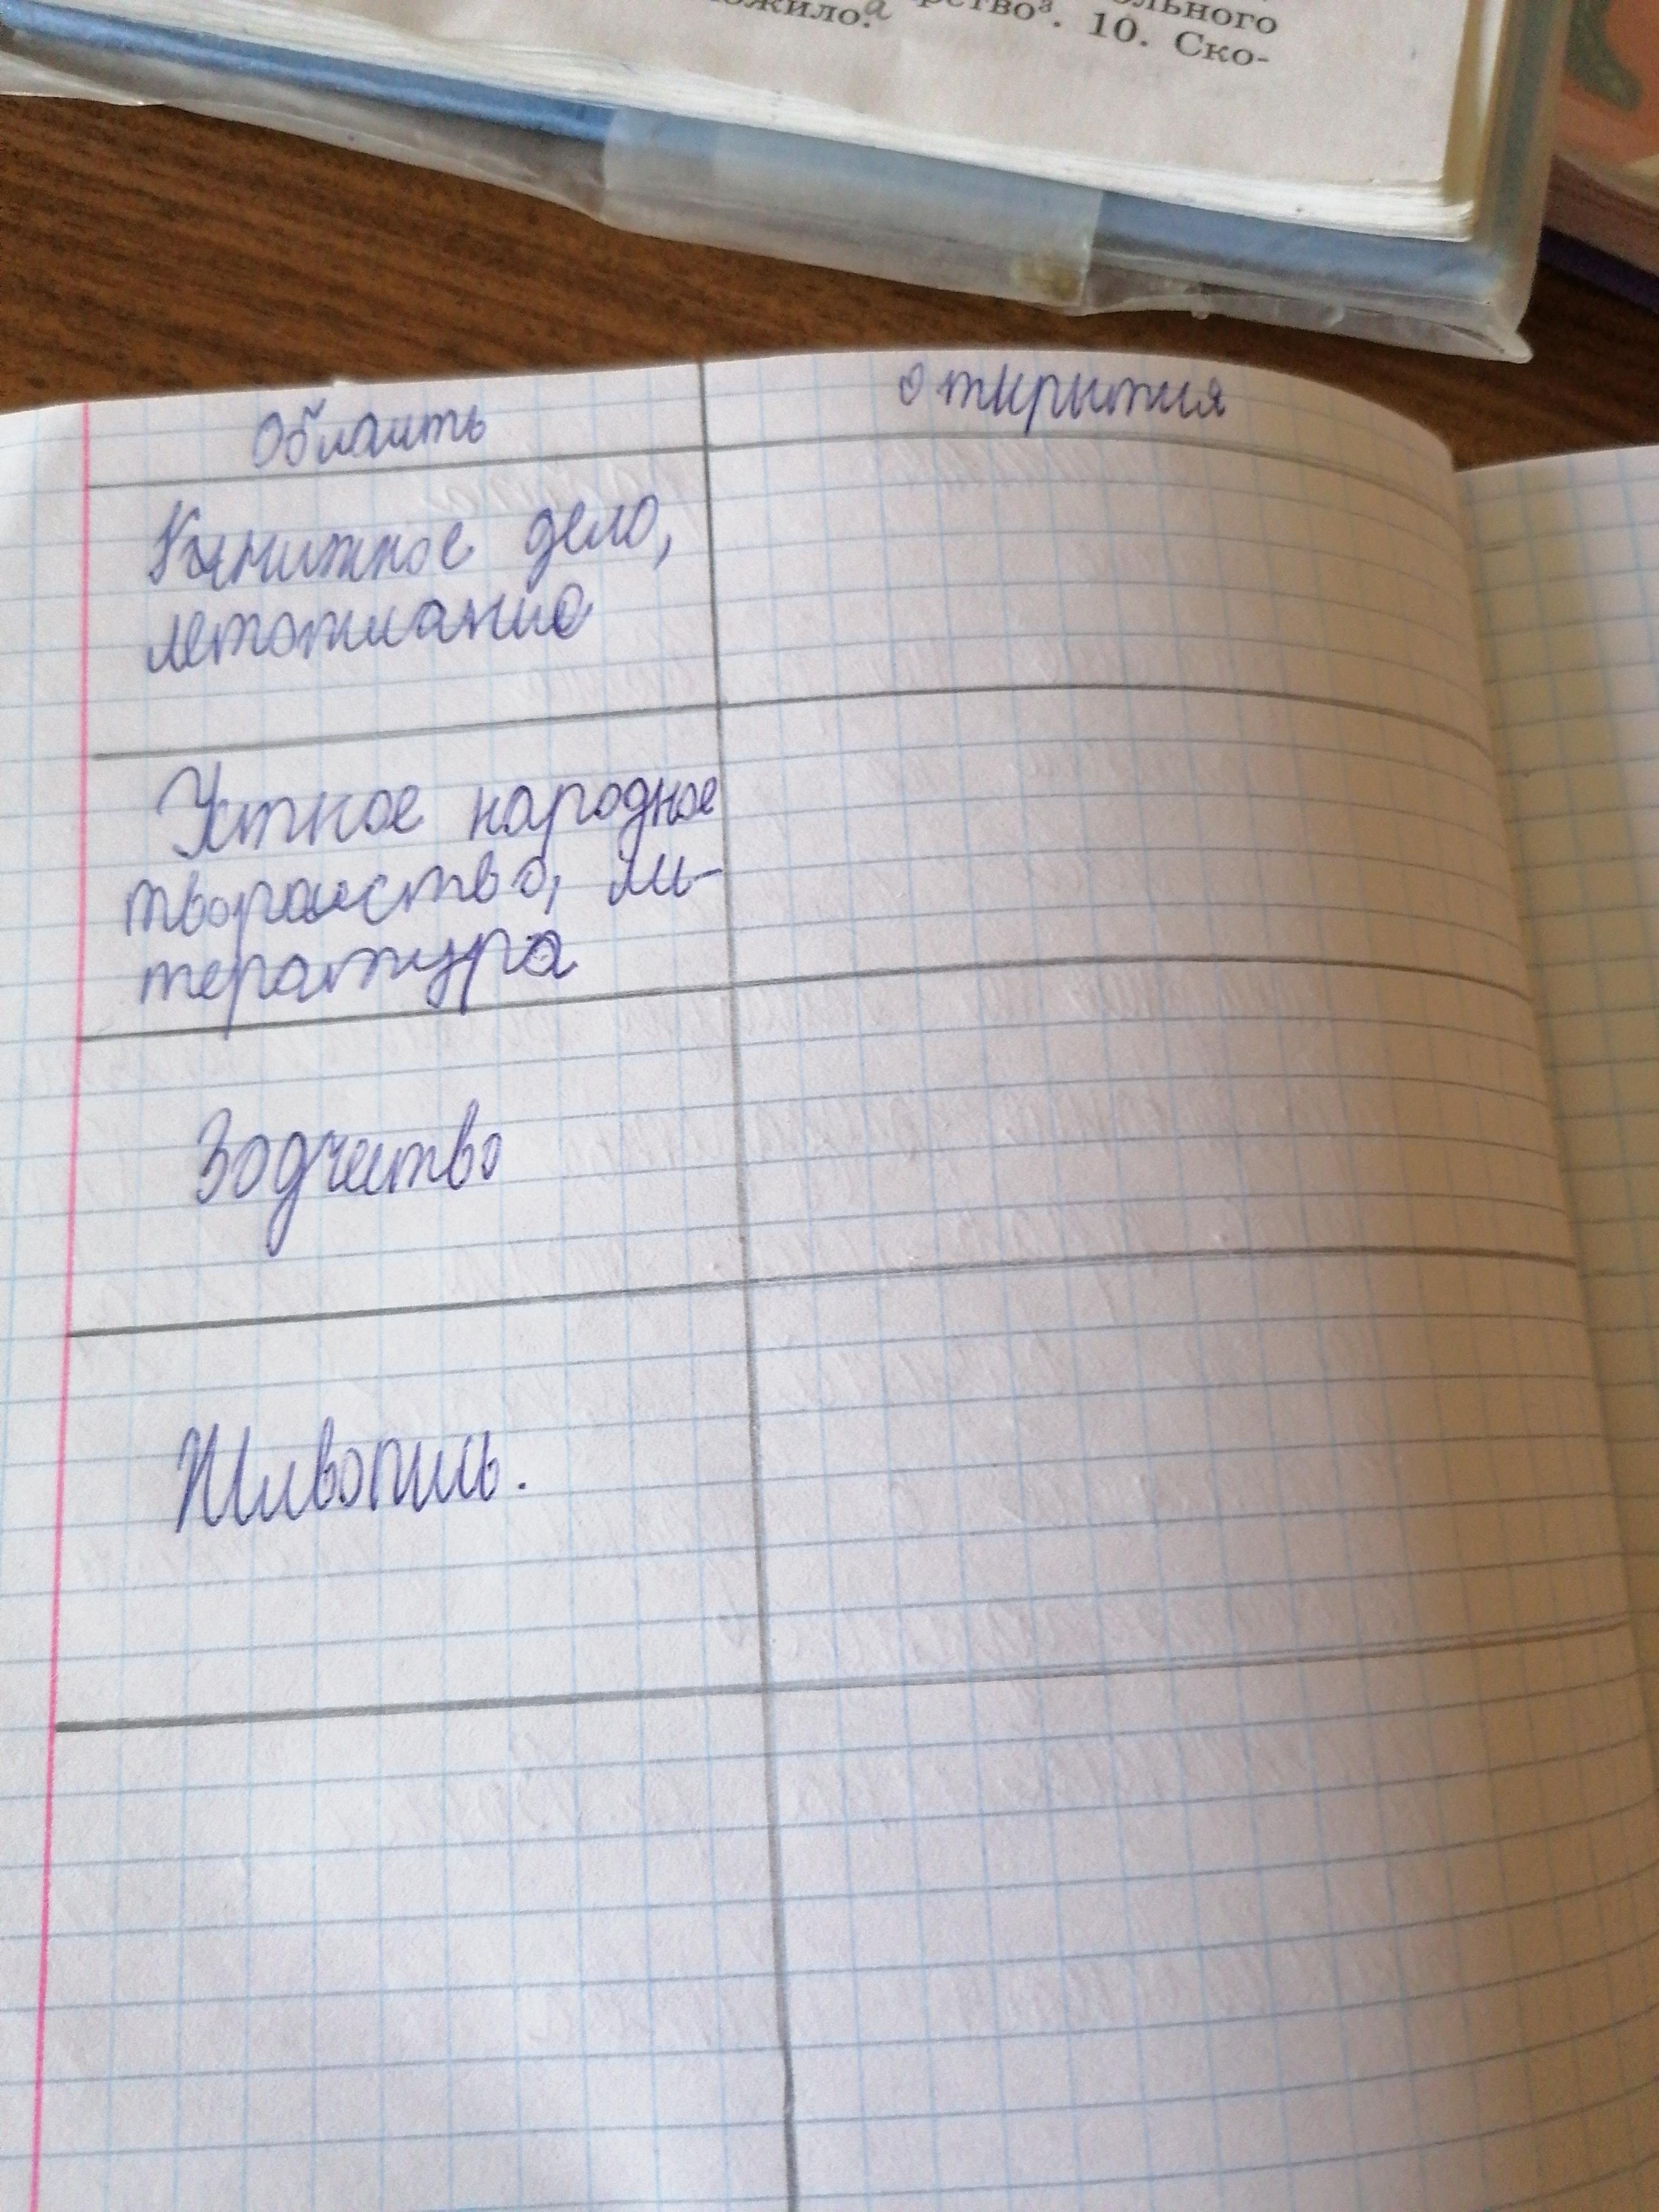 ольного
ожило.а
рство³. 10. Ско-
Область
открытия
Книжное дело,
летописание
Устное народное
творчаство, ли-
тература
Зодчество
Живопись.